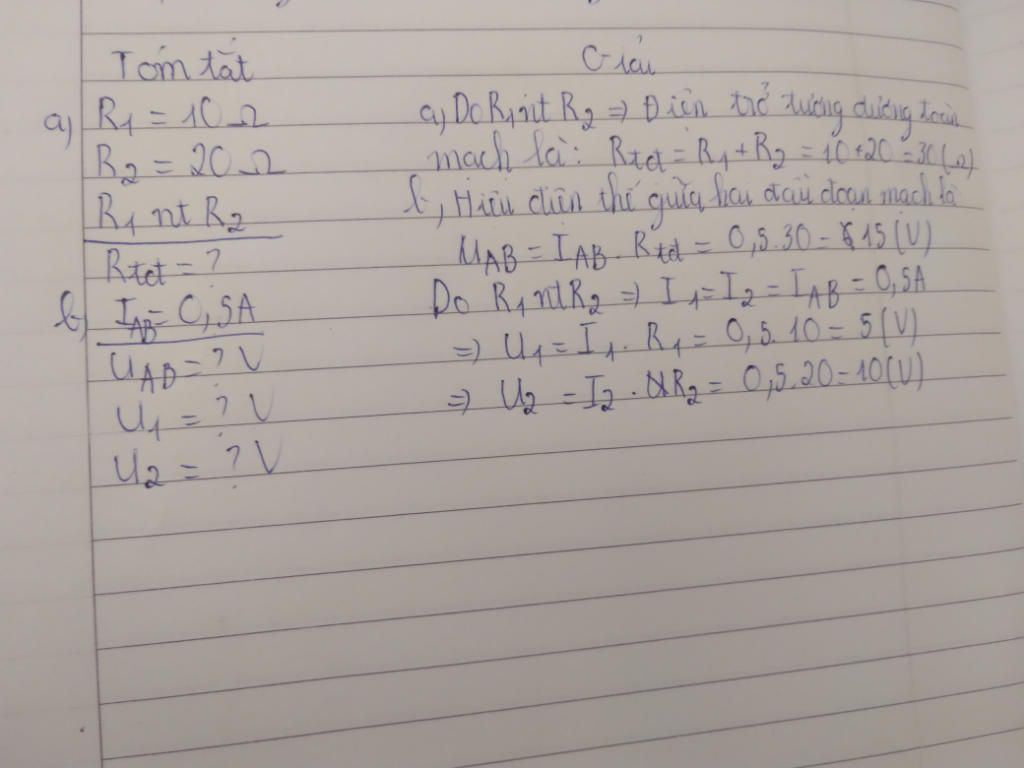 Tóm tắt
a, R1 = 10 Ω
R2 = 20 Ω
R1 nt R2
Rtđ = ?
b, IAB = 0,5A
UAB = ? V
U1 = ? V
U2 = ? V
Giải
a, Do R1 nt R2 ⇒ Điện trở tương đương toàn
mạch là: Rtđ = R1 + R2 = 10 + 20 = 30 (Ω)
b, Hiệu điện thế giữa hai đầu đoạn mạch là
UAB = IAB . Rtđ = 0,5.30 = 15 (V)
Do R1 nt R2 ⇒ I1 = I2 = IAB = 0,5A
⇒ U1 = I1 . R1 = 0,5. 10 = 5 (V)
⇒ U2 = I2 . R2 = 0,5.20 = 10 (V)